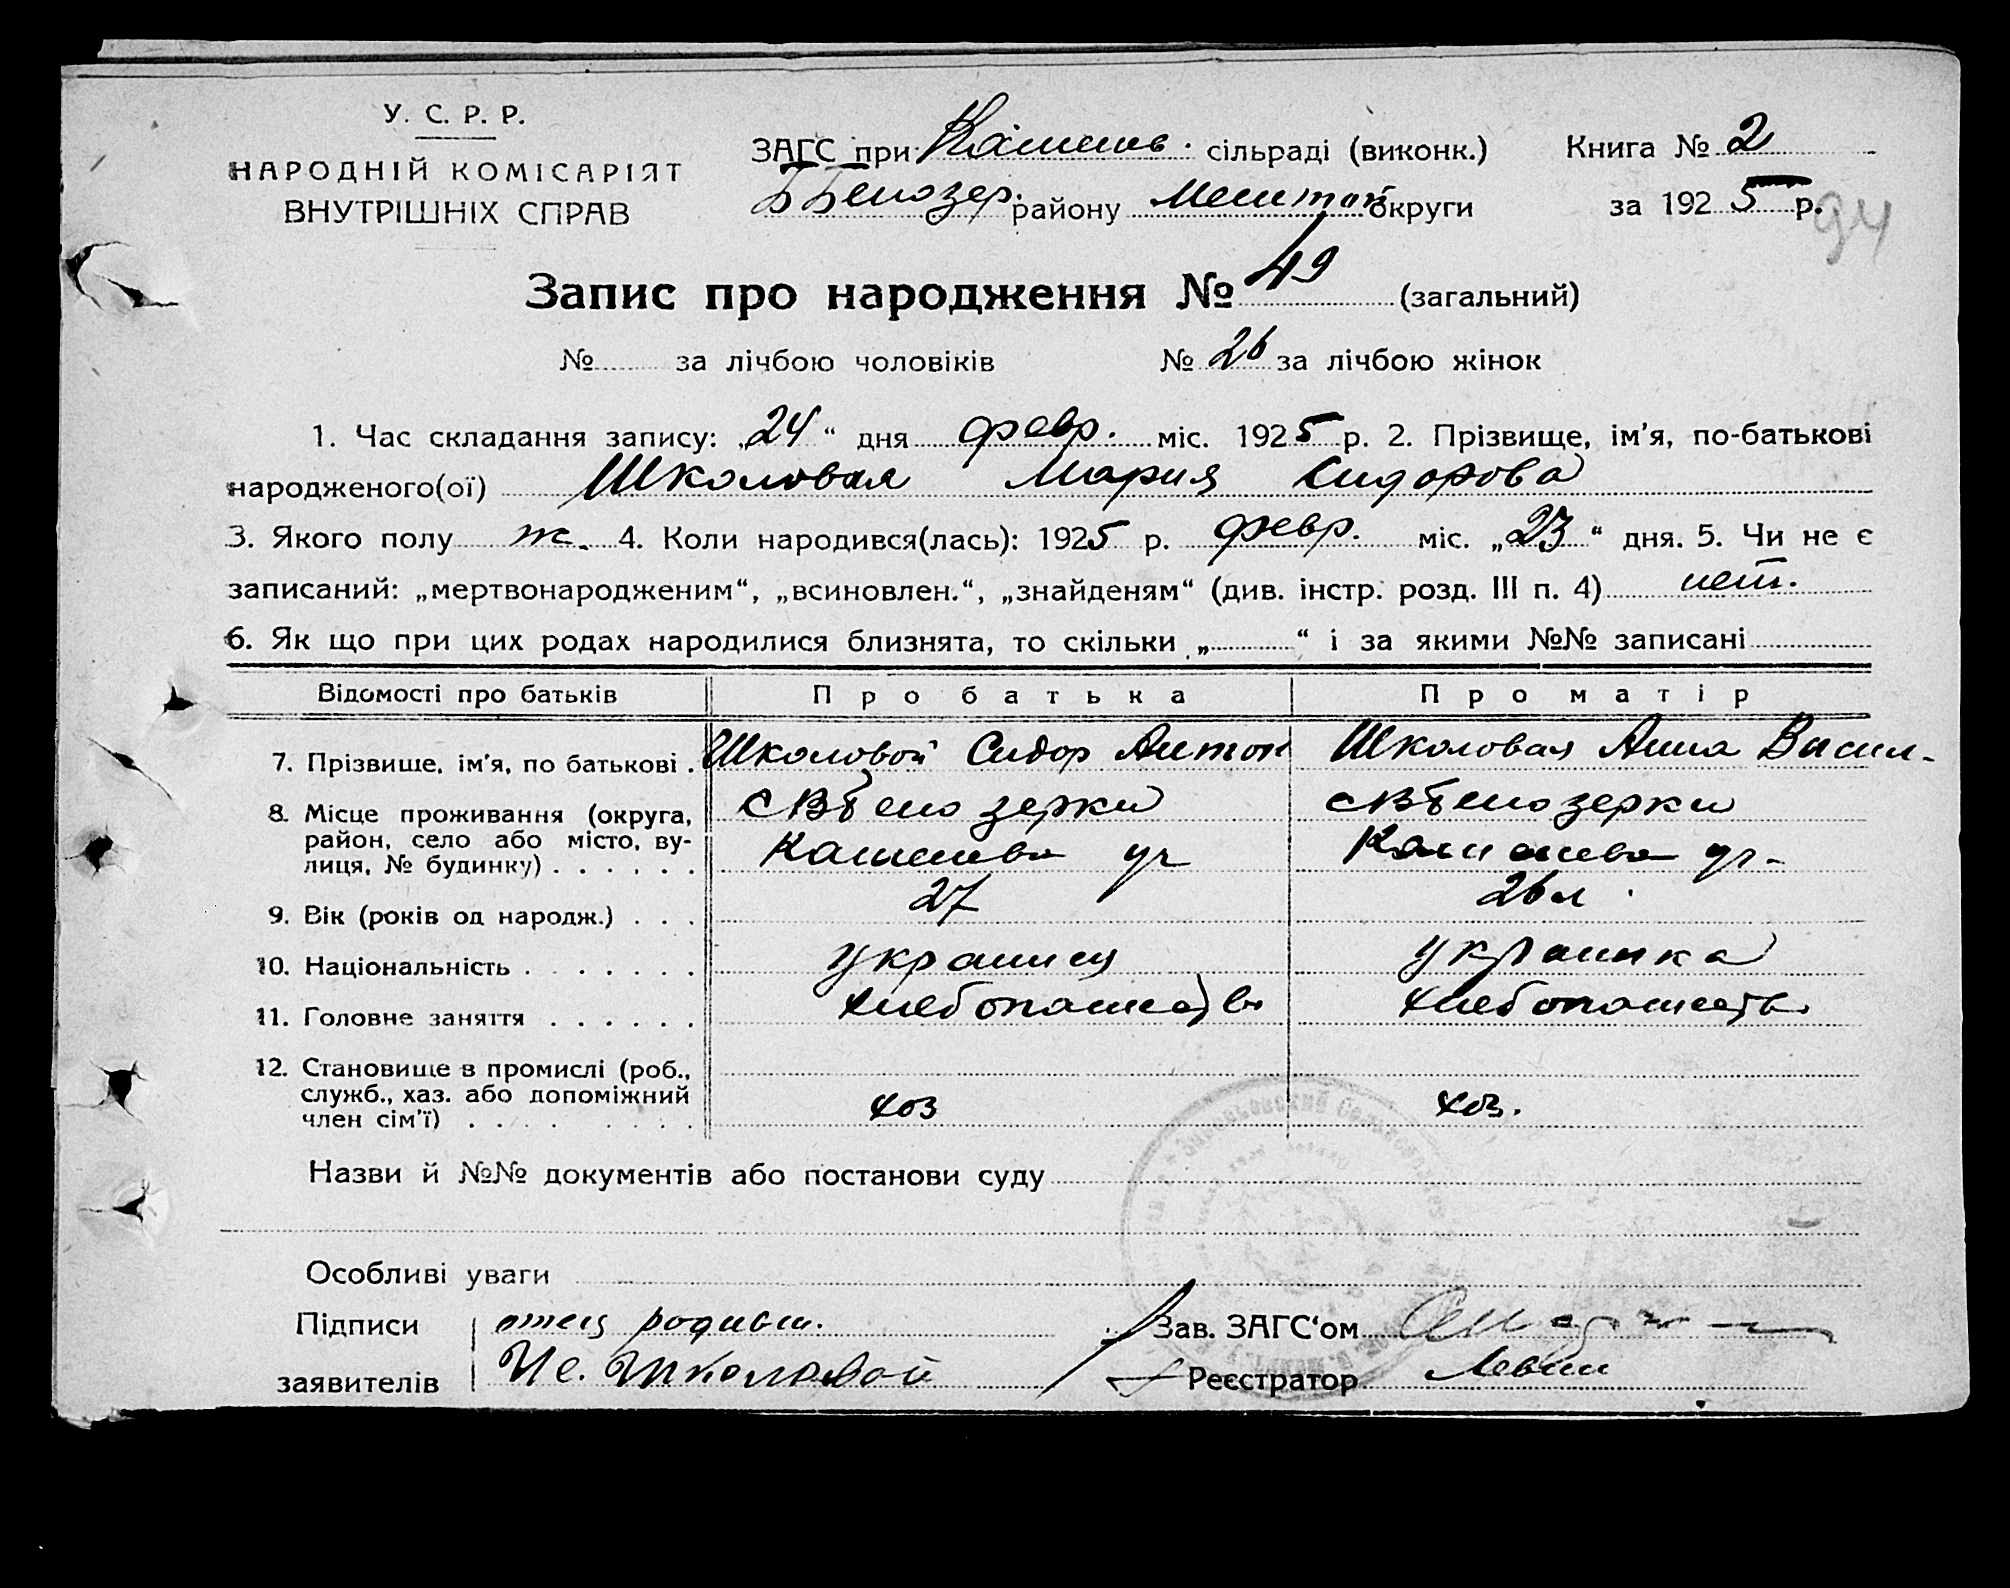 У. С. Р. Р.
НАРОДНІЙ КОМІСАРІЯТ
ВНУТРІШНІХ СПРАВ
ЗАГС при сільраді (виконк.)
ББелозер. району Мелитоп округи
Книга № 2
за 1925 р.
94
Запис про народження № 49 (загальний)
№ за лічбою чоловіків № 26 за лічбою жінок
1. Час складання запису: „24“ дня февр. міс. 1925 р. 2. Прізвище, ім’я, по-батькові
народженого(ої) Школовая Мария Сидорова
3. Якого полу ж. 4. Коли народився(лась): 1925 р. февр. міс. „23“ дня. 5. Чи не є
записаний: „мертвонародженим“, „всиновлен.“, „знайденям“ (див. інстр. розд. III п. 4) нет.
6. Як що при цих родах народилися близнята, то скільки „ “ і за якими №№ записані
Відомості про батьків Про батька Про матір
7. Прізвище, ім’я, по батькові . Школовой Сидор Антон Школовая Анна Васил-
8. Місце проживання (округа, сВБелозерки сВБелозерки
район, село або місто, ву-
лиця, № будинку) . . . . . .
9. Вік (років од народж.) . . . 27 26 л.
10. Національність . . . . . . . украинец украинка
11. Головне заняття . . . . . . хлебопашество хлебопашеств.
12. Становище в промислі (роб.,
служб., хаз. або допоміжний хоз хоз.
член сім’ї) . . . . . . . .
Назви й №№ документів або постанови суду
Особливі уваги
Підписи отец родивш. Зав. ЗАГС‘ом
заявителів Школовой Реєстратор Левин